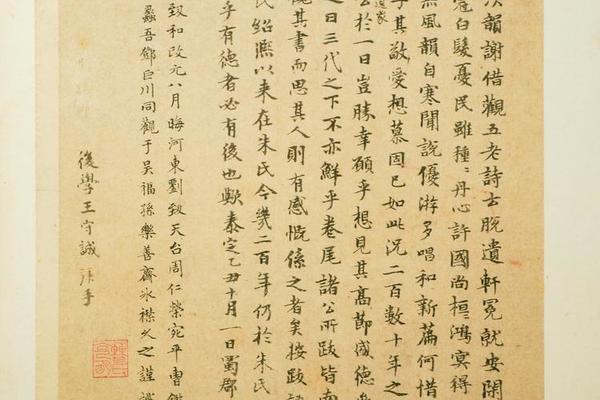 次韻謝借觀五老詩古脫遺軒冕就安閑
冠白髮憂民雖種〻丹心許國尚桓〻鴻冥得
無風韻自寒聞說優游多唱和新篇何惜
乎其敬愛想慕固已如此況二百數十年之
公於一日豈勝幸願乎想見其高節盛德
之曰三代之下不亦鮮乎卷尾諸公所跋皆南
覽其書而思其人則有感慨係之者矣按跋
氏紹熙以來在朱氏今幾二百年仍於朱氏
乎有德者必有後也歟泰定乙丑十月一日蜀郡
致和改元八月晦河東劉致天台周仁榮宛平曹鑑
蠡吾鄧巨川同觀于吳福孫樂善齋冰襟久之謹識
後學王守誠拜手